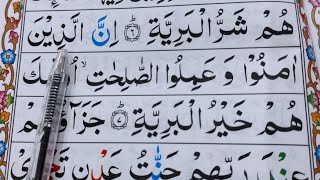 هُمْ شَرُّ الْبَرِيَّةِ ؕ﴿۶﴾ اِنَّ الَّذِيْنَ
اٰمَنُوْا وَ عَمِلُوا الصّٰلِحٰتِ ۙ اُولٰٓئِكَ
هُمْ خَيْرُ الْبَرِيَّةِ ؕ﴿۷﴾ جَزَآؤُهُمْ
عِنْدَ رَبِّهِمْ جَنّٰتُ عَدْنٍ تَجْرِيْ